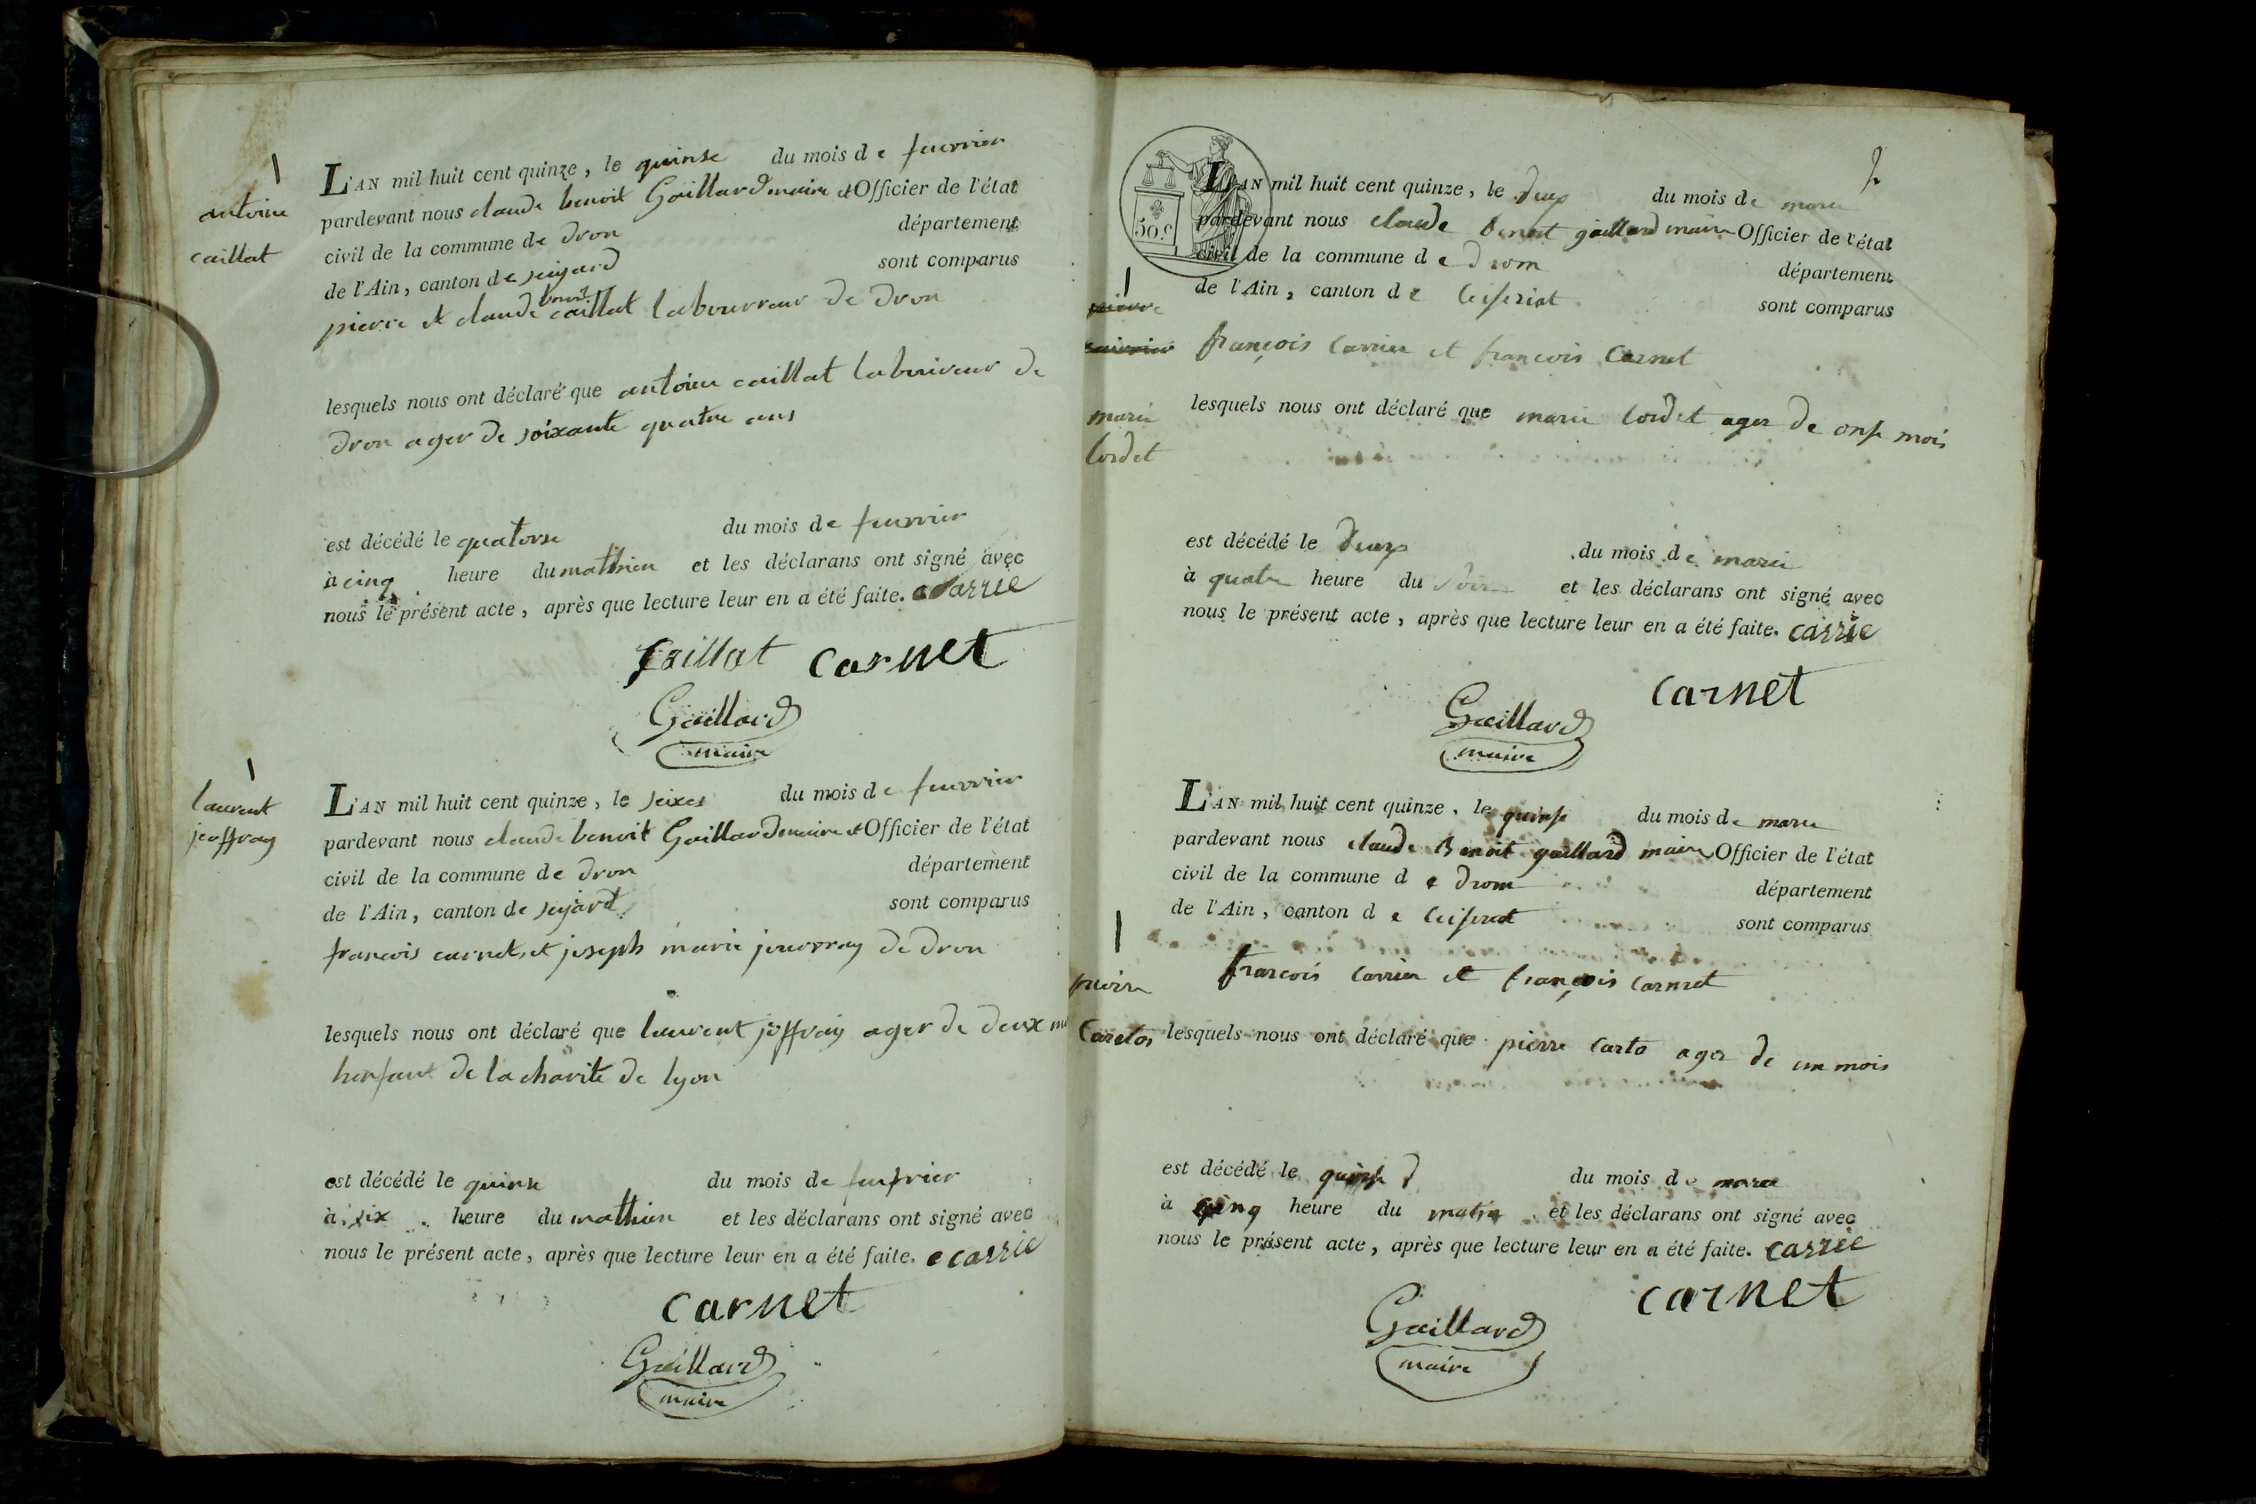 L'AN mil huit cent quinze, le quinse du mois de feuvrier
pardevant nous claude benoit Gaillard maire et Officier de l'état
civil de la commune de dron département
de l'Ain, canton de seijard sont comparus
benoit
pierre et claude caillat labourreur de dron
antoine
caillat
lesquels nous ont déclaré que antoine caillat laboureur de
dron ager de soixante quatre ans
est décédé le quatorse du mois de feuvrier
à cinq heure du mathien et les déclarans ont signé avec
nous le présent acte, après que lecture leur en a été faite. carrie
Caillat carnet
Gaillard
maire
laurent
joffray
L'AN mil huit cent quinze, le seixes du mois de feuvrier
pardevant nous claude benoit Gaillard maire et Officier de l'état
civil de la commune de dron département
de l'Ain, canton de seijard sont comparus
francois carnet et joseph marie jouvray de dron
lesquels nous ont déclaré que laurent joffray ager de deux
henfant de la charite de lyon
est décédé le quinse du mois de feuvrier
à six heure du mathien et les déclarans ont signé avec
nous le présent acte, après que lecture leur en a été faite. carrie
carnet
Gaillard
maire
2
50 c
L'AN mil huit cent quinze, le deux du mois de mars
pardevant nous claude benoit gaillard maire Officier de l'état
civil de la commune de drom département
de l'Ain, canton de Ceiseriat sont comparus
pierre
françois Carrier et francois Carnet
marie
Cordet
lesquels nous ont déclaré que marie Cordet ager de onse mois
est décédé le deux du mois de mars
à quatre heure du soir et les déclarans ont signé avec
nous le présent acte, après que lecture leur en a été faite. carrie
carnet
Gaillard
maire
L'AN mil huit cent quinze, le quinse du mois de mars
pardevant nous claude Benoit gaillard maire Officier de l'état
civil de la commune de drom département
de l'Ain, canton de Ceiseriat sont comparus
francois Carrier et françois Carnet
pierre
lesquels nous ont déclaré que pierre Carto ager de un mois
est décédé le quinse du mois de mars
à cinq heure du matin et les déclarans ont signé avec
nous le présent acte, après que lecture leur en a été faite. carrie
carnet
Gaillard
maire